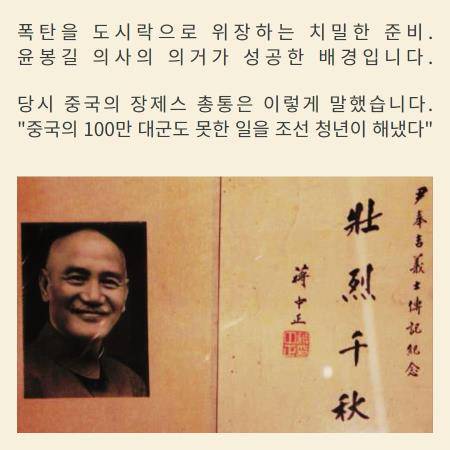 폭탄을 도시락으로 위장하는 치밀한 준비.
윤봉길 의사의 의거가 성공한 배경입니다.
당시 중국의 장제스 총통은 이렇게 말했습니다.
"중국의 100만 대군도 못한 일을 조선 청년이 해냈다"
尹奉吉義士傳記紀念
壯烈千秋
蔣中正